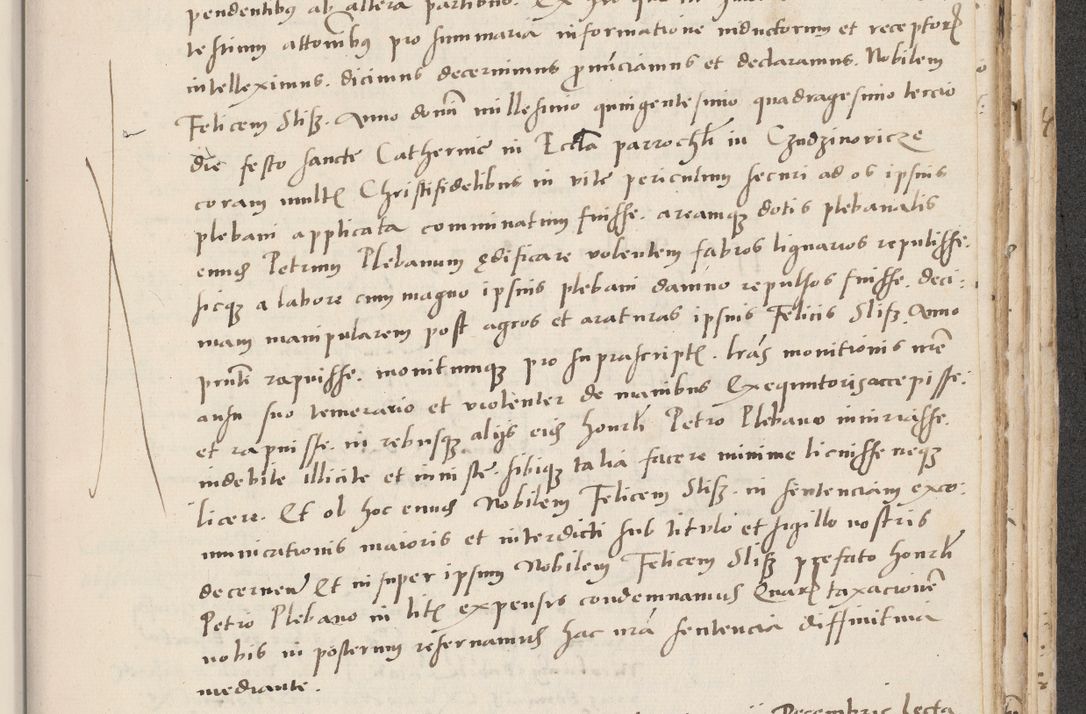 pendentibus ab altera partibus. Ex
testium attonibus pro summaria informatione inductorum et receptor
intelleximus. dicimus decernimus pronunciamus et declaramus. Nobilem
Felicem Slisz. Anno domini millesimo quingentesimo quadragesimo tercio
die festo sancte Catherine in Eccla parrochli in Czudzinovicze
coram mult Christifidelibus in vite periculum securi ad os ipsius
plebani applicata comminatum fuisse. areamque dotis plebanalis
eundem Petrum Plebanum edificare volentem fabros lignarios repulisse.
sicque a labore cum magno ipsius plebani damno repulsos fuisse. deci:
mam manipularem post agros et araturas ipsius Felicis Slisz. Anno
pnte rapuisse. monitumque pro suprascript. lras monitionis nre
ausu suo temerario et violenter de manibus Exequutoris accepisse:
et rapuisse. in rebusque alijs eidem honrli Petro Plebano iniuriasse.
indebite Illicite et iniuste. sibique talia facere minime licuisse neque
licere. Et ob hoc eundem Nobilem Felicem Slisz. in sentenciam exco:
municationis maioris et interdicti sub titulo et sigillo nostris
decernend Et in super ipsum Nobilem Felicem Slisz prefato honrli
Petro Plebano in lite expensis condemnamus Quar taxacionem
nobis in posterum reservamus hac nra sentencia diffinitiva
mediante.
Decembris lecta